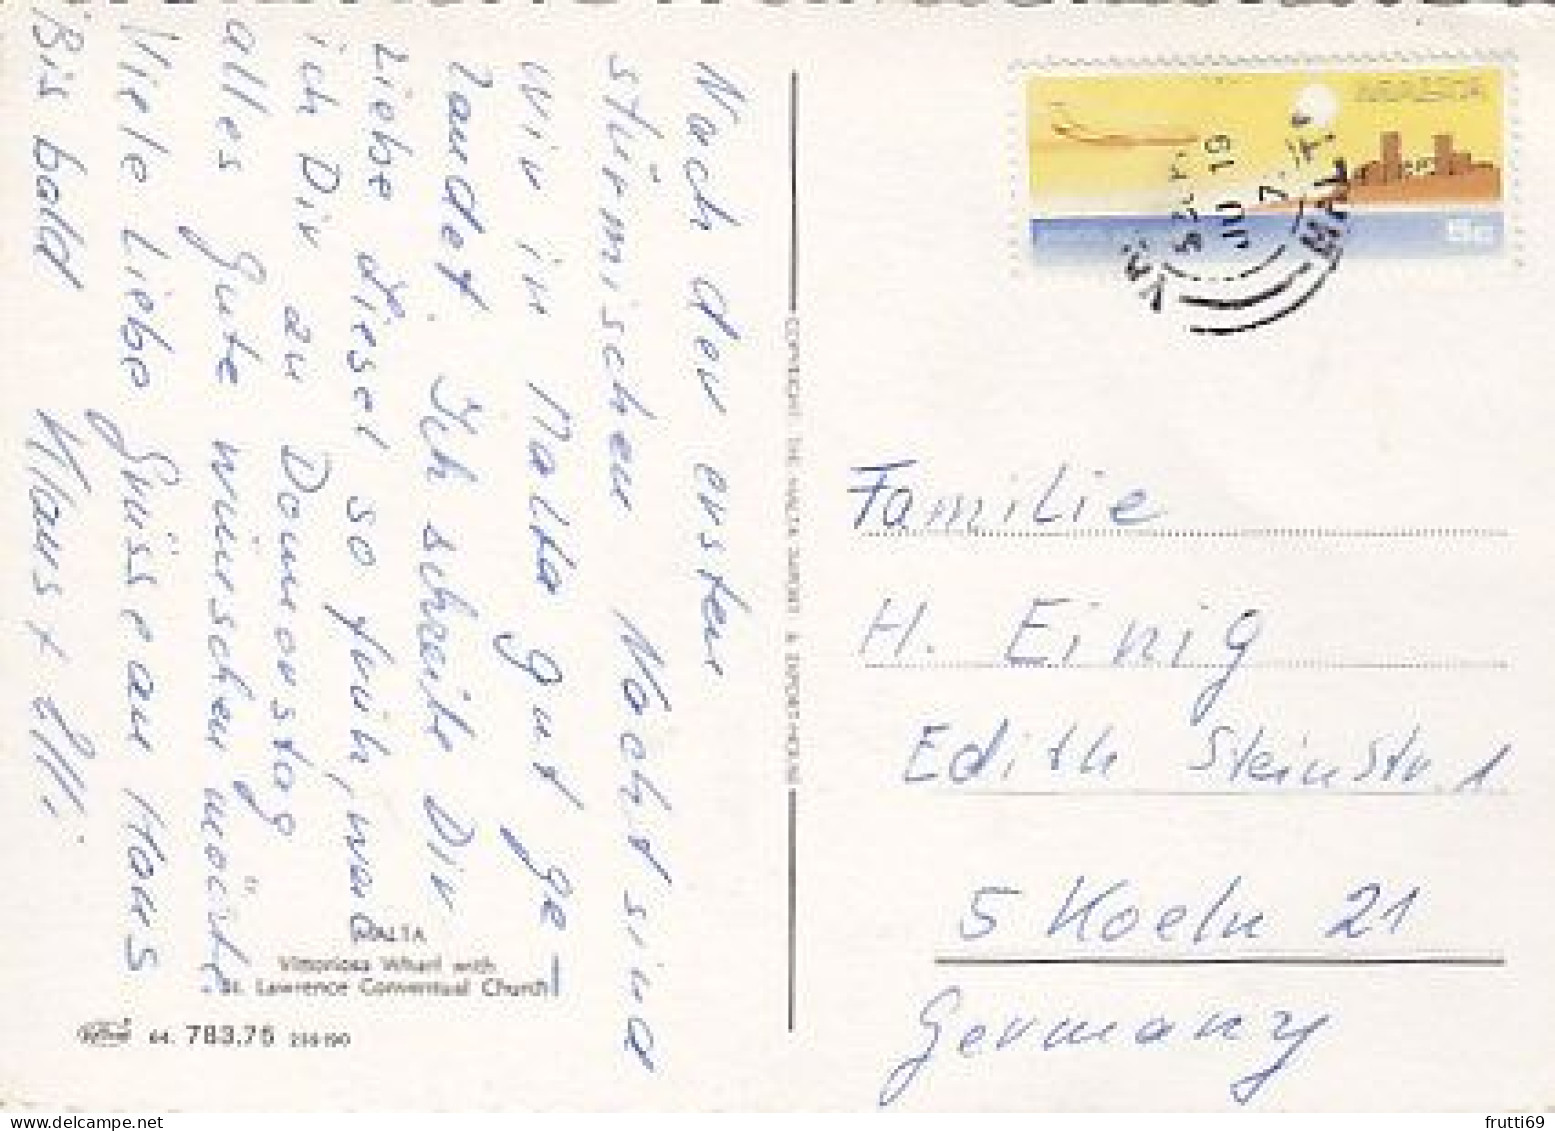 Nach der ersten
stürmischen Nacht sind
wir in Malta gut ge-
landet. Ich schreibe Dir
Liebe Liesel so früh, weil
ich Dir zu Donnerstag
alles Gute wünschen möchte
Viele Liebe Grüsse an Klaus
Bis bald Klaus + Elli.
MALTA
Vittoriosa Wharf with
St. Lawrence Conventual Church
64. 783.75 216190
COPYRIGHT: THE MALTA IMPORT & EXPORT HOUSE
5c
JU 19
MALTA
Familie
H. Einig
Edith Steinstr. 1
5 Koeln 21
Germany
frutti69